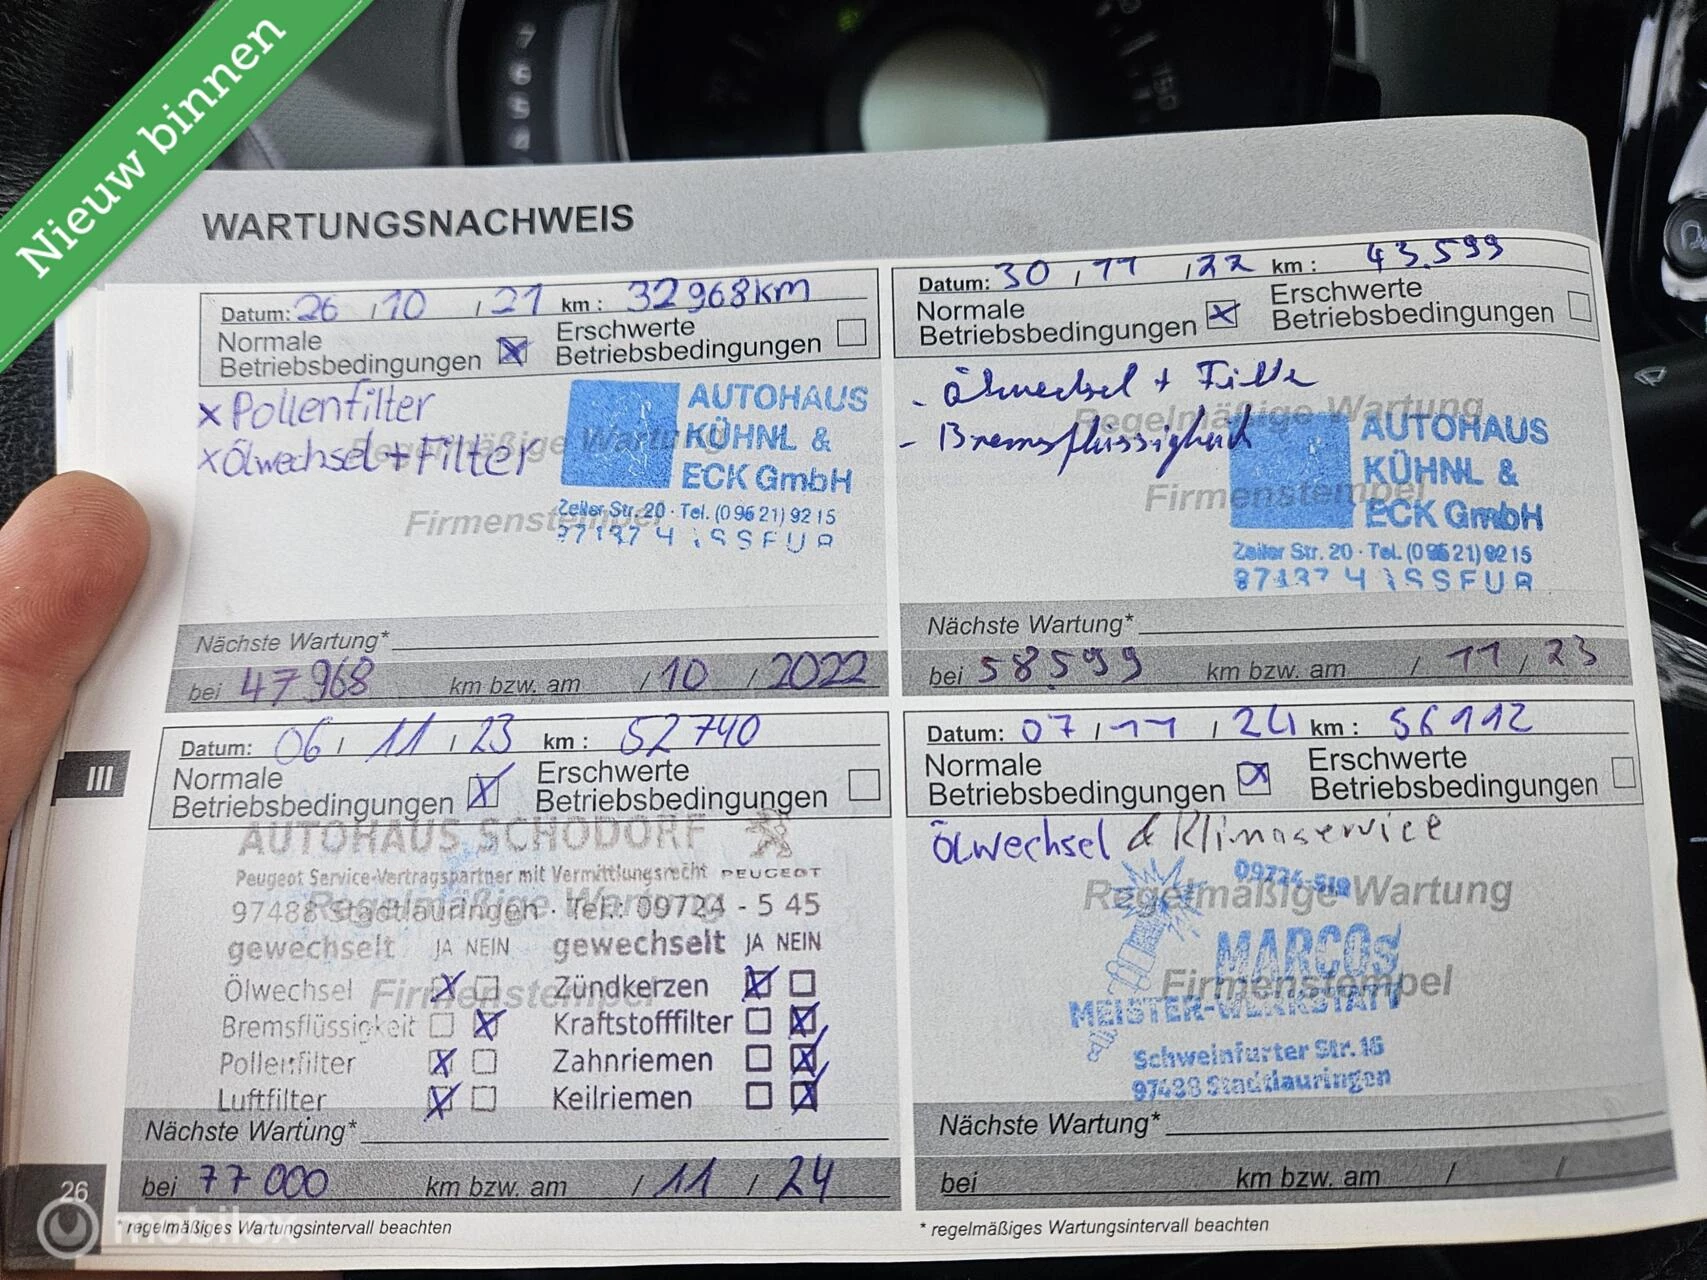 Nieuw binnen
WARTUNGSNACHWEIS
Datum: 26 / 10 / 21 km : 32968km
Normale Betriebsbedingungen Erschwerte Betriebsbedingungen
x Pollenfilter
x Ölwechsel + Filter
Regelmäßige Wartung
Firmenstempel
AUTOHAUS
KÜHNL &
ECK GmbH
Zeller Str. 20 · Tel. (0 96 21) 92 15
Nächste Wartung*
bei 47968 km bzw. am / 10 / 2022
Datum: 30 / 11 / 22 km : 43.599
Normale Betriebsbedingungen Erschwerte Betriebsbedingungen
- Ölwechsel + Filter
- Bremsflüssigkeit
Regelmäßige Wartung
Firmenstempel
AUTOHAUS
KÜHNL &
ECK GmbH
Zeller Str. 20 · Tel. (0 96 21) 92 15
Nächste Wartung*
bei 58.599 km bzw. am / 11 / 23
III
Datum: 06 / 11 / 23 km : 52740
Normale Betriebsbedingungen Erschwerte Betriebsbedingungen
AUTOHAUS SCHODORF
Peugeot Service-Vertragspartner mit Vermittlungsrecht PEUGEOT
97488 Stadtlauringen · Tel.: 09724 - 5 45
Regelmäßige Wartung
gewechselt JA NEIN gewechselt JA NEIN
Ölwechsel Zündkerzen
Firmenstempel
Bremsflüssigkeit Kraftstofffilter
Pollenfilter Zahnriemen
Luftfilter Keilriemen
Nächste Wartung*
bei 77000 km bzw. am / 11 / 24
Datum: 07 / 11 / 24 km : 56112
Normale Betriebsbedingungen Erschwerte Betriebsbedingungen
Ölwechsel & Klimaservice
Regelmäßige Wartung
MARCOs
Firmenstempel
MEISTER-WERKSTATT
Schweinfurter Str. 16
97488 Stadtlauringen
Nächste Wartung*
bei km bzw. am / /
26
* regelmäßiges Wartungsintervall beachten
* regelmäßiges Wartungsintervall beachten
mobilox